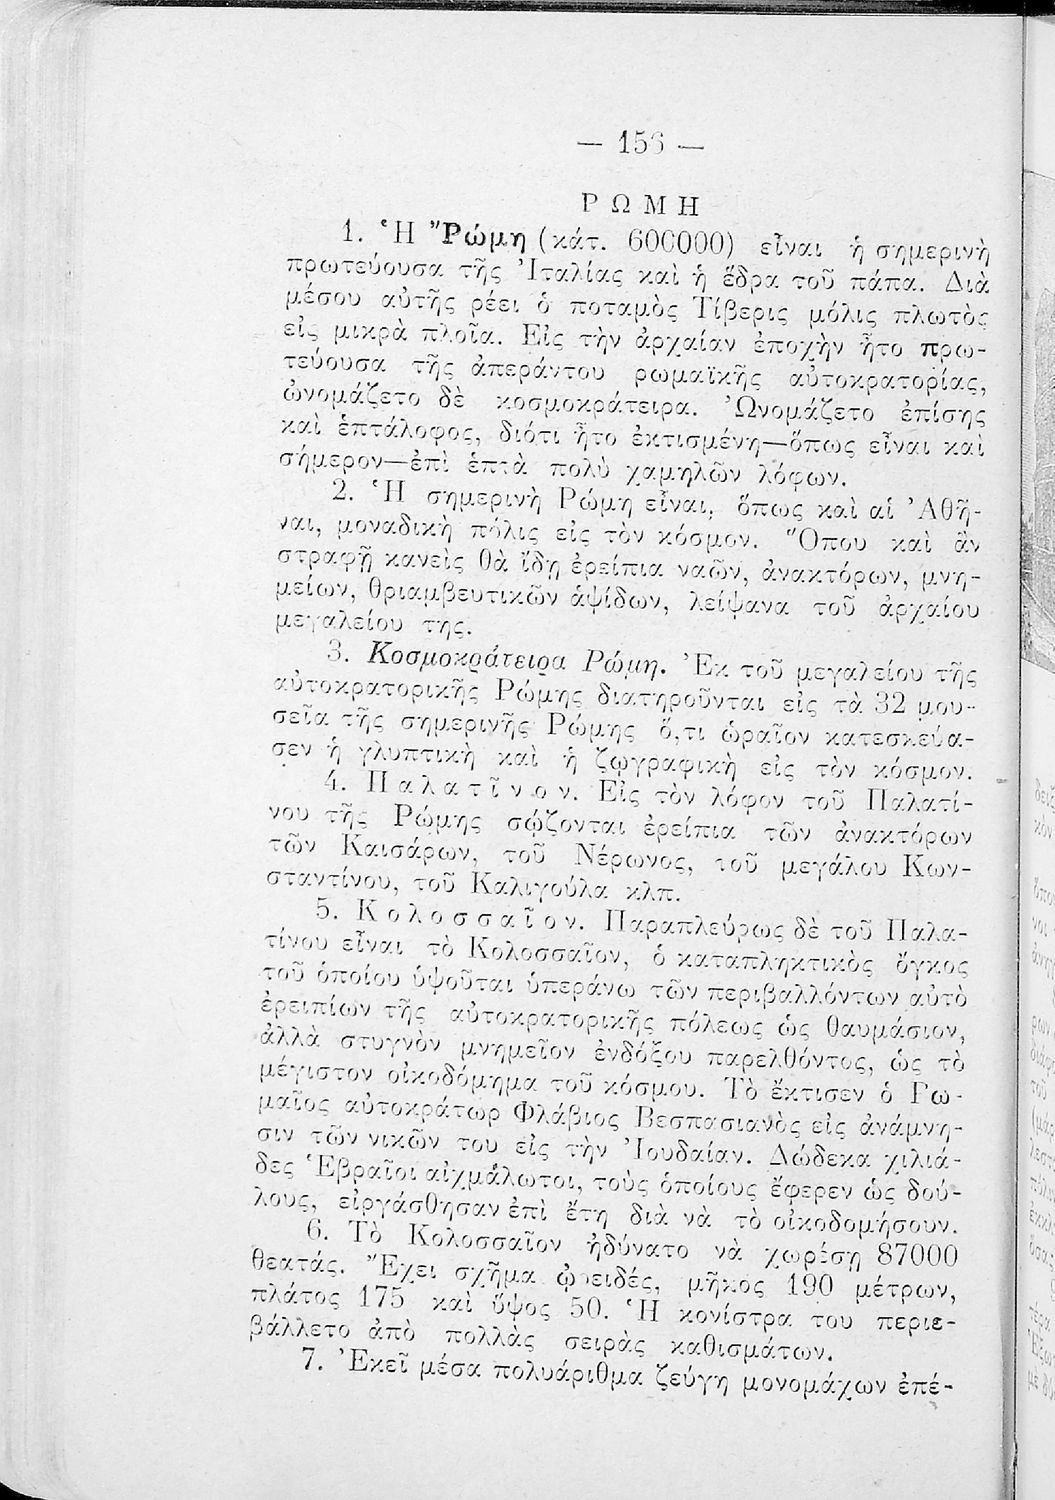 — 156 —
ΡΩΜΗ
1. Ἡ Ῥώμη (κάτ. 600000) εἶναι ἡ σημερινὴ
πρωτεύουσα τῆς Ἰταλίας καὶ ἡ ἕδρα τοῦ πάπα. Διὰ
μέσου αὐτῆς ρέει ὁ ποταμὸς Τίβερις μόλις πλωτὸς
εἰς μικρὰ πλοῖα. Εἰς τὴν ἀρχαίαν ἐποχὴν ἦτο πρω-
τεύουσα τῆς ἀπεράντου ρωμαϊκῆς αὐτοκρατορίας,
ὠνομάζετο δὲ κοσμοκράτειρα. Ὠνομάζετο ἐπίσης
καὶ ἑπτάλοφος, διότι ἦτο ἐκτισμένη—ὅπως εἶναι καὶ
σήμερον—ἐπὶ ἑπτὰ πολὺ χαμηλῶν λόφων.
2. Ἡ σημερινὴ Ρώμη εἶναι, ὅπως καὶ αἱ Ἀθῆ-
ναι, μοναδικὴ πόλις εἰς τὸν κόσμον. Ὅπου καὶ ἂν
στραφῇ κανεὶς θὰ ἴδῃ ἐρείπια ναῶν, ἀνακτόρων, μνη-
μείων, θριαμβευτικῶν ἁψίδων, λείψανα τοῦ ἀρχαίου
μεγαλείου της.
3. Κοσμοκράτειρα Ρώμη. Ἐκ τοῦ μεγαλείου τῆς
αὐτοκρατορικῆς Ρώμης διατηροῦνται εἰς τὰ 32 μου-
σεῖα τῆς σημερινῆς Ρώμης ὅ,τι ὡραῖον κατεσκεύα-
σεν ἡ γλυπτικὴ καὶ ἡ ζῳγραφικὴ εἰς τὸν κόσμον.
4. Παλατῖνον. Εἰς τὸν λόφον τοῦ Παλατί-
νου τῆς Ρώμης σῴζονται ἐρείπια τῶν ἀνακτόρων
τῶν Καισάρων, τοῦ Νέρωνος, τοῦ μεγάλου Κων-
σταντίνου, τοῦ Καλιγούλα κλπ.
5. Κολοσσαῖον. Παραπλεύρως δὲ τοῦ Παλα-
τίνου εἶναι τὸ Κολοσσαῖον, ὁ καταπληκτικὸς ὄγκος
τοῦ ὁποίου ὑψοῦται ὑπεράνω τῶν περιβαλλόντων αὐτὸ
ἐρειπίων τῆς αὐτοκρατορικῆς πόλεως ὡς θαυμάσιον,
ἀλλὰ στυγνὸν μνημεῖον ἐνδόξου παρελθόντος, ὡς τὸ
μέγιστον οἰκοδόμημα τοῦ κόσμου. Τὸ ἔκτισεν ὁ Ρω-
μαῖος αὐτοκράτωρ Φλάβιος Βεσπασιανὸς εἰς ἀνάμνη-
σιν τῶν νικῶν του εἰς τὴν Ἰουδαίαν. Δώδεκα χιλιά-
δες Ἑβραῖοι αἰχμάλωτοι, τοὺς ὁποίους ἔφερεν ὡς δού-
λους, εἰργάσθησαν ἐπὶ ἔτη διὰ νὰ τὸ οἰκοδομήσουν.
6. Τὸ Κολοσσαῖον ἠδύνατο νὰ χωρέσῃ 87000
θεατάς. Ἔχει σχῆμα ᾠοειδές, μῆκος 190 μέτρων,
πλάτος 175 καὶ ὕψος 50. Ἡ κονίστρα του περιε-
βάλλετο ἀπὸ πολλὰς σειρὰς καθισμάτων.
7. Ἐκεῖ μέσα πολυάριθμα ζεύγη μονομάχων ἐπέ-